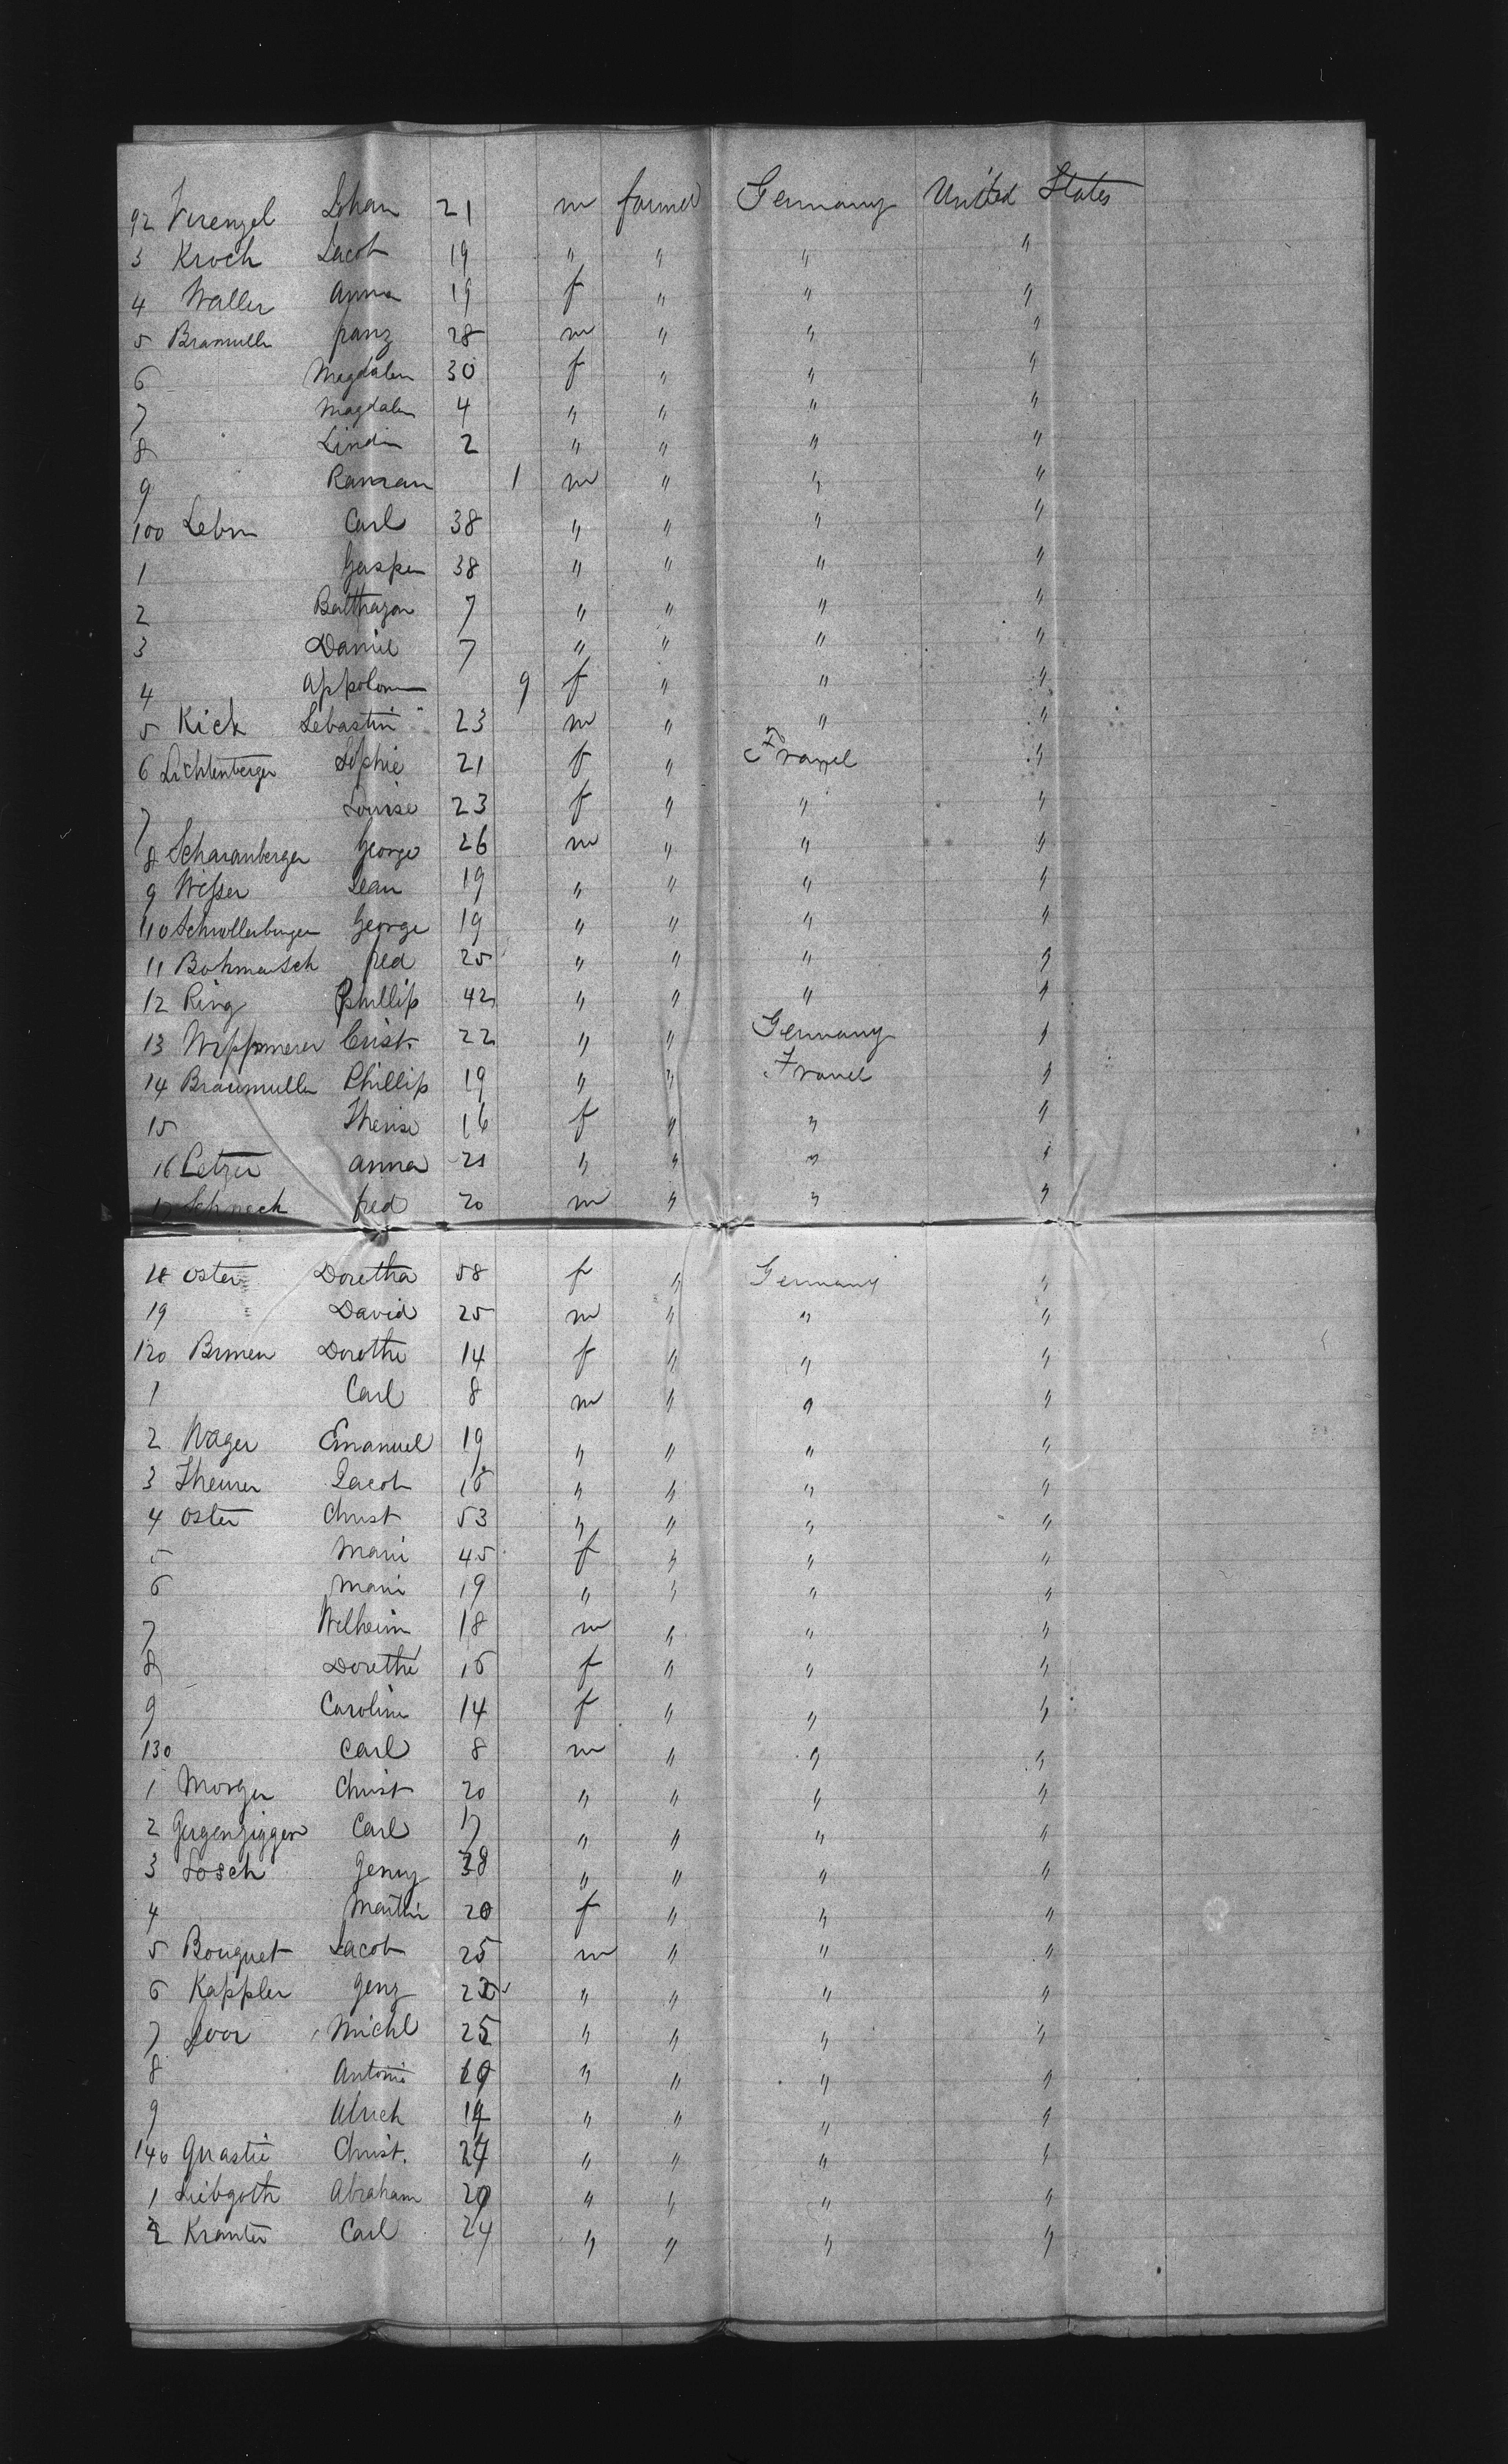 92 Virengel Johan 21 m farmer Germany United States
3 Kroch Jacob 19 " " " "
4 Waller Anna 19 f " " "
5 Bramulle franz 28 m " " "
6 Magdalen 30 f " " "
7 Magdalen 4 " " " "
8 Lindin 2 " " " "
9 Raman 1 m " " "
100 Lebrn Carl 38 " " " "
1 Gasper 38 " " " "
2 Balthazar 7 " " " "
3 Daniel 7 " " " "
4 Appolom 9 f " " "
5 Kick Sebastin 23 m " " "
6 Lichtenberger Sophie 21 f " France "
7 Louise 23 f " " "
8 Scharanberger George 26 m " " "
9 Wisser Jean 19 " " " "
110 Schmollenburger George 19 " " " "
11 Bohmansch fred 25 " " " "
12 Ring Phillip 42 " " " "
13 Crist. 22 " " Germany "
14 Braumulle Phillip 19 " " France "
15 Therise 16 f " " "
16 Petzer Anna 21 " " " "
17 Schneck fred 20 m " " "
18 Oster Doretha 58 f " Germany "
19 David 25 m " " "
120 Brmen Dorothe 14 f " " "
1 Carl 8 m " " "
2 Wager Emanuel 19 " " " "
3 Theurer Jacob 18 " " " "
4 Oster Christ 53 " " " "
5 Mari 45 f " " "
6 Mari 19 " " " "
7 Wilheim 18 m " " "
8 Dorethe 16 f " " "
9 Carolin 14 f " " "
130 Carl 8 m " " "
1 Morger Christ 20 " " " "
2 Gergenzigger Carl 17 " " " "
3 Losch Genrg 38 " " " "
4 Marthi 20 f " " "
5 Bouquet Jacob 25 m " " "
6 Kappler Genz 23 " " " "
7 Loor Michl 25 " " " "
8 Antoni 19 " " " "
9 Ulrich 14 " " " "
140 Gnastie Christ. 24 " " " "
1 Liebgoth Abraham 20 " " " "
2 Kranter Carl 24 " " " "